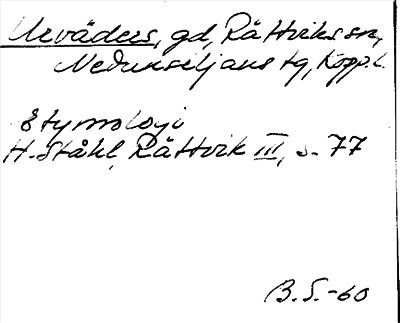 Urväders, gd, Rättviks sn,
Nedansiljans tg, Kopp. l.
Etymologi
H. Ståhl, Rättvik III, s. 77
B. S. -60